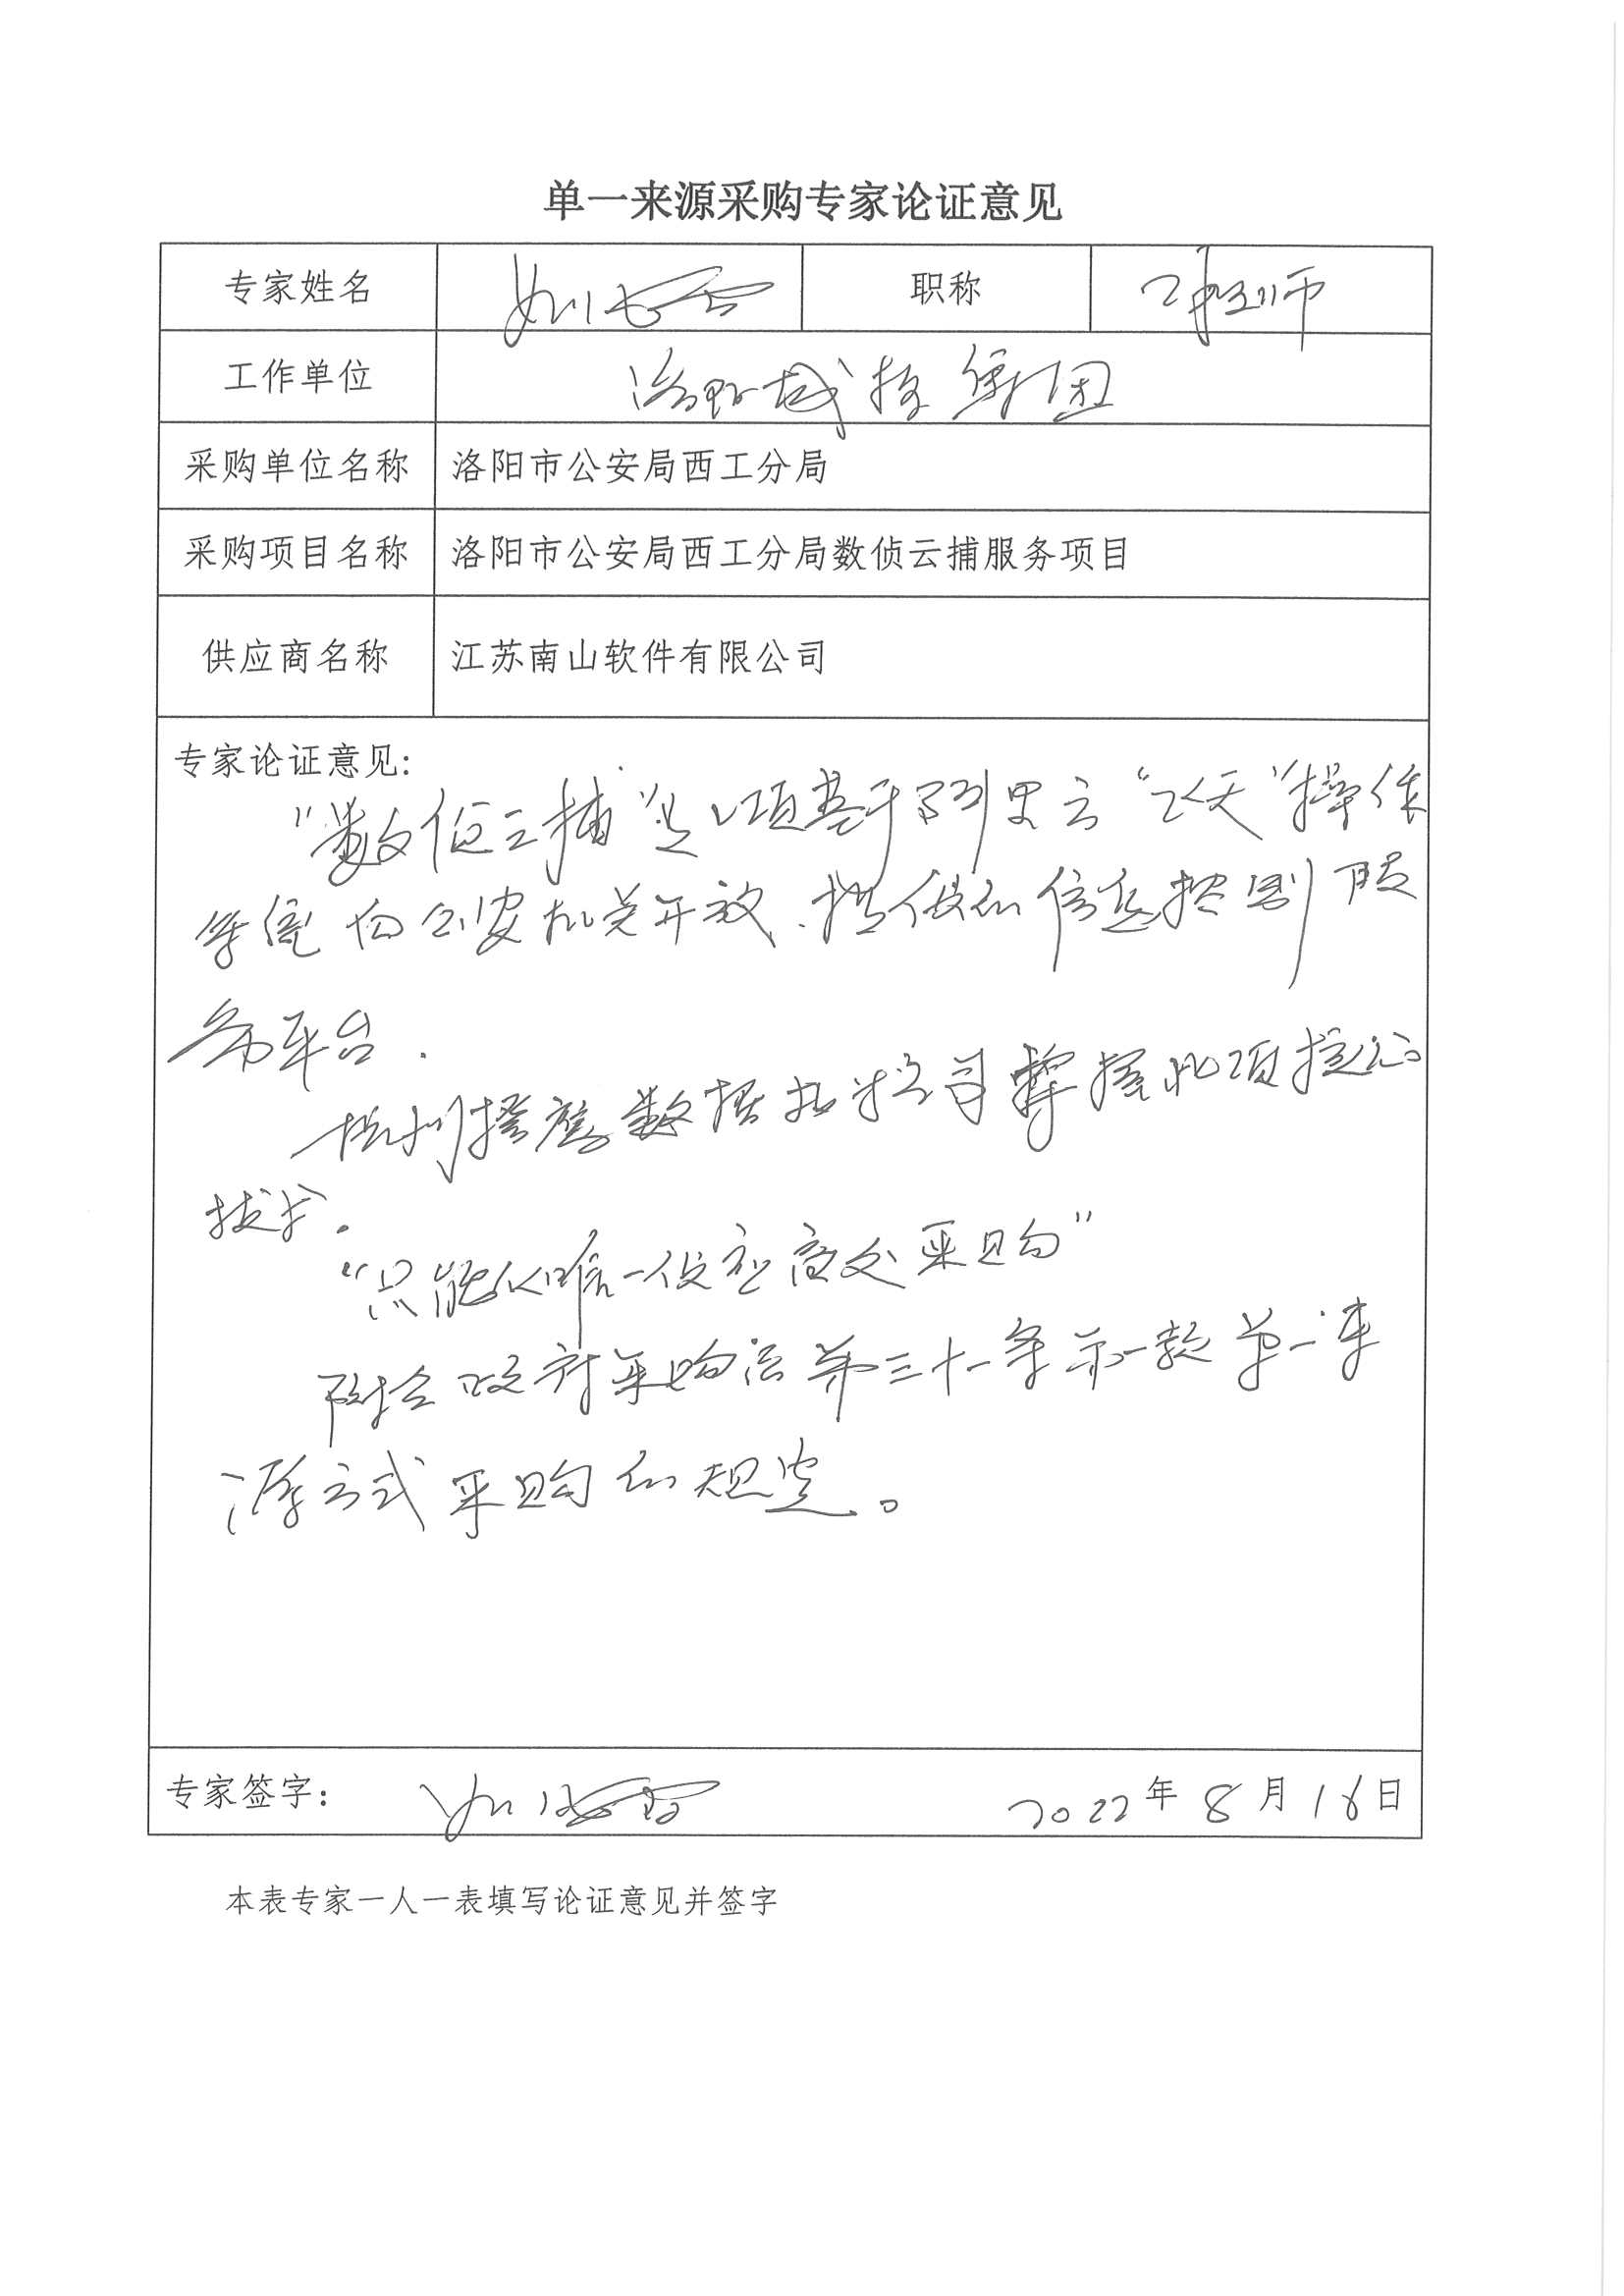 单一来源采购专家论证意见
专家姓名 职称 工程师
工作单位 洛阳城投集团
采购单位名称 洛阳市公安局西工分局
采购项目名称 洛阳市公安局西工分局数侦云捕服务项目
供应商名称 江苏南山软件有限公司
专家论证意见:
“数侦云捕”是一项基于阿里云“飞天”操作
系统向公安机关开放、提供的信息挖掘服
务平台.
杭州 数据 公司掌握此项核心
技术。
“只能从唯一供应商处采购”
符合政府采购法第三十一条第一款单一来
源方式采购的规定。
专家签字: 2022年8月16日
本表专家一人一表填写论证意见并签字